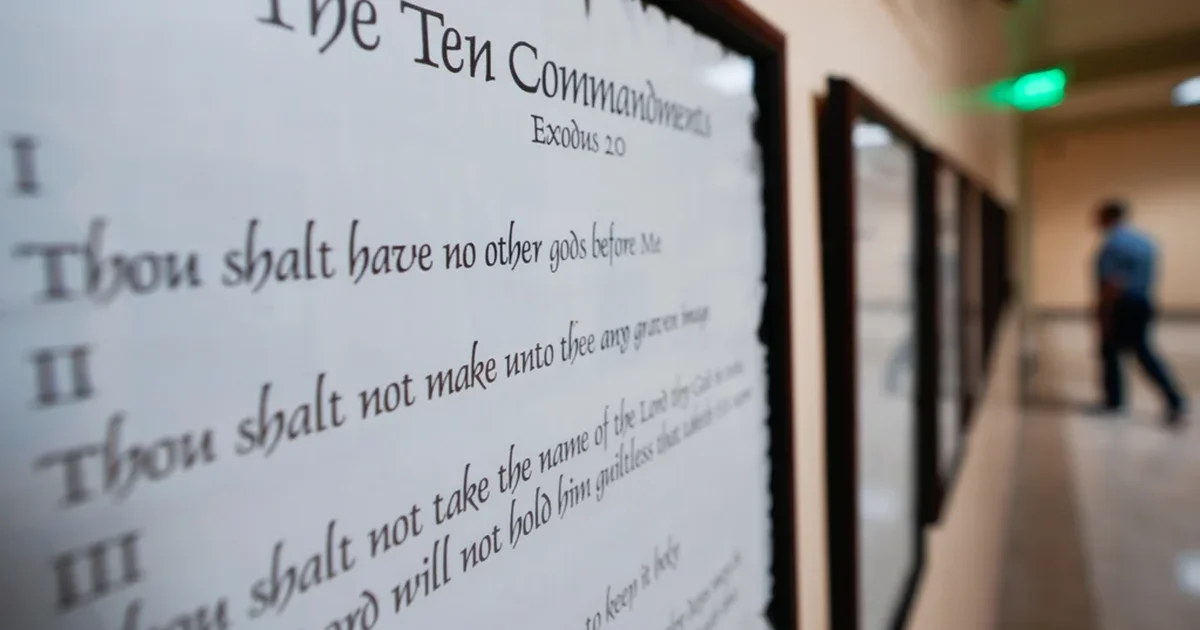 The Ten Commandments
Exodus 20
I
Thou shalt have no other gods before Me
II
Thou shalt not make unto thee any graven image
III
Thou shalt not take the name of the Lord thy God in vain
will not hold him guiltless that taketh His name
to keep it holy